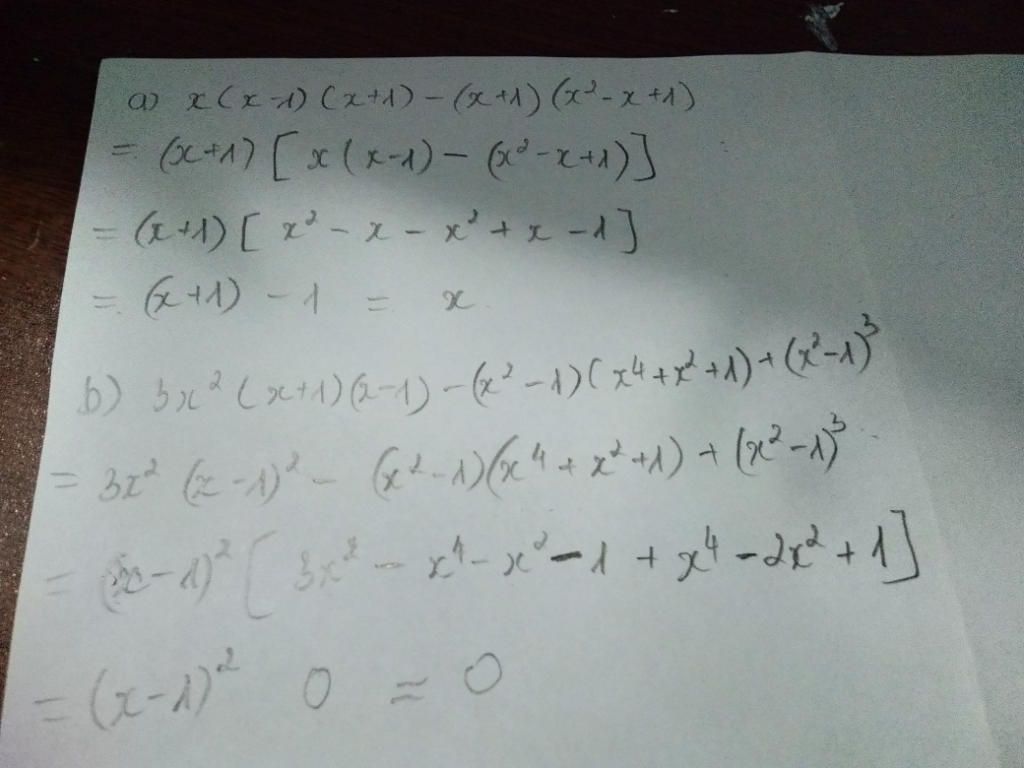 a) x(x-1)(x+1)-(x+1)(x²-x+1)
= (x+1)[x(x-1)-(x²-x+1)]
= (x+1)[x²-x-x²+x-1]
= (x+1)-1 = x
b) 3x²(x+1)(x-1)-(x²-1)(x⁴+x²+1)+(x²-1)³
= 3x²(x-1)²-(x²-1)(x⁴+x²+1)+(x²-1)³
= (x-1)²[3x²-x⁴-x²-1+x⁴-2x²+1]
= (x-1)² 0 = 0